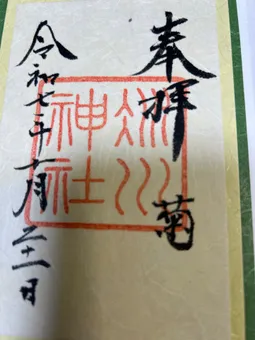 奉拝 菊
冰川
神社
令和七年十月二十一日